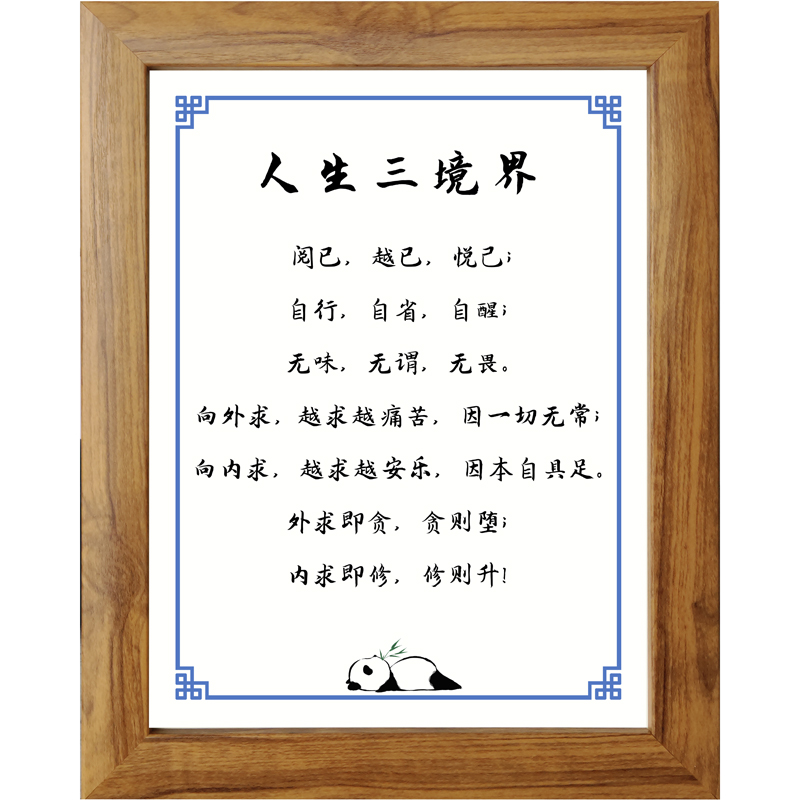 人生三境界
阅已，越已，悦己；
自行，自省，自醒；
无味，无谓，无畏。
向外求，越求越痛苦，因一切无常；
向内求，越求越安乐，因本自具足。
外求即贪，贪则堕；
内求即修，修则升！